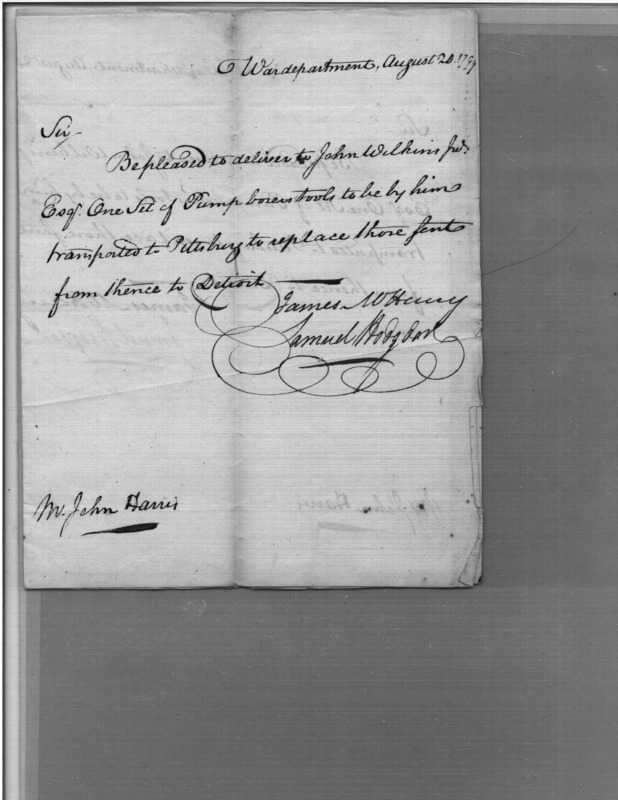 War department, August 20 1799
Sir
Be pleased to deliver to John Wilkins Junr
Esqr. One Set of Pump borers tools to be by him
transported to Pittsburg to replace those sent
from thence to Detroit
James McHenry
Samuel Hodgdon
Mr. John Harris